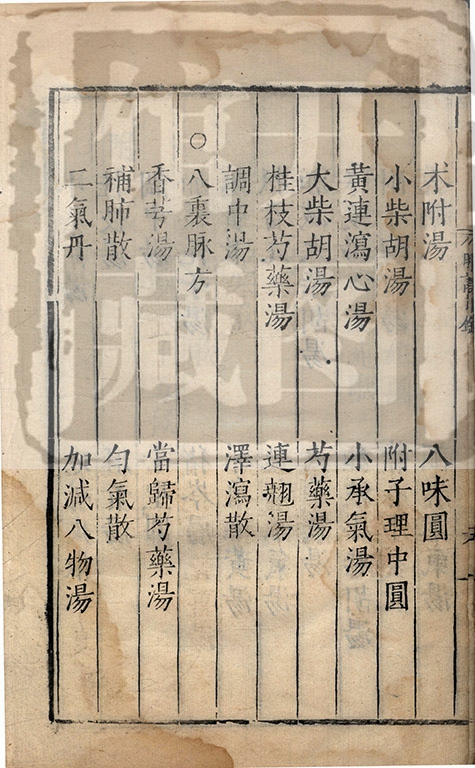 术附湯 八味圓
小柴胡湯 附子理中圓
黃連瀉心湯 小承氣湯
大柴胡湯 芍藥湯
桂枝芍藥湯 連翹湯
調中湯 澤瀉散
○八裏脉方
香芎湯 當歸芍藥湯
補肺散 勻氣散
二氣丹 加減八物湯